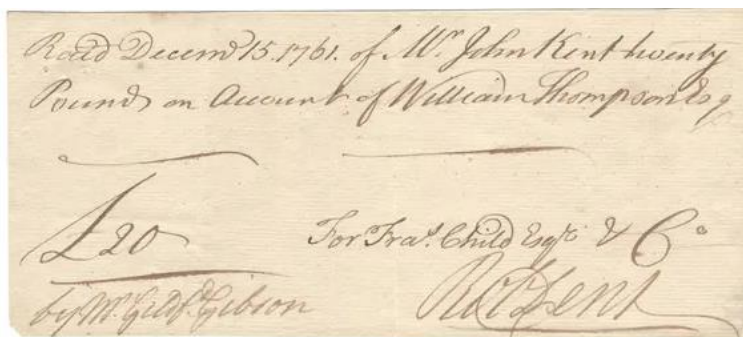 Rec'd Decem'r 15. 1761. of Mr. John Kent twenty
Pounds on Account of William Thompson Esq
£20
For Fra's. Child Esq'r. & Co
by Mr. Gibson
Rob't Dent